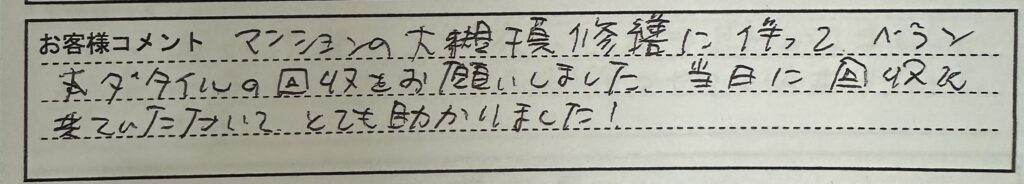 お客様コメント マンションの大規模修繕に伴って、ベラン
ダタイルの回収をお願いしました。当日に回収に
来ていただいて とても助かりました!